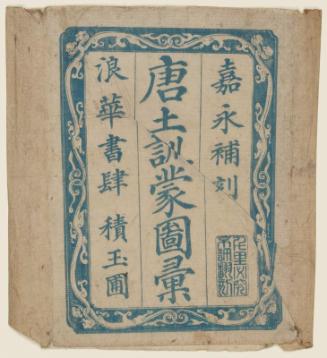 嘉永補刻
唐土訓蒙圖彙
浪華書肆 積玉圃